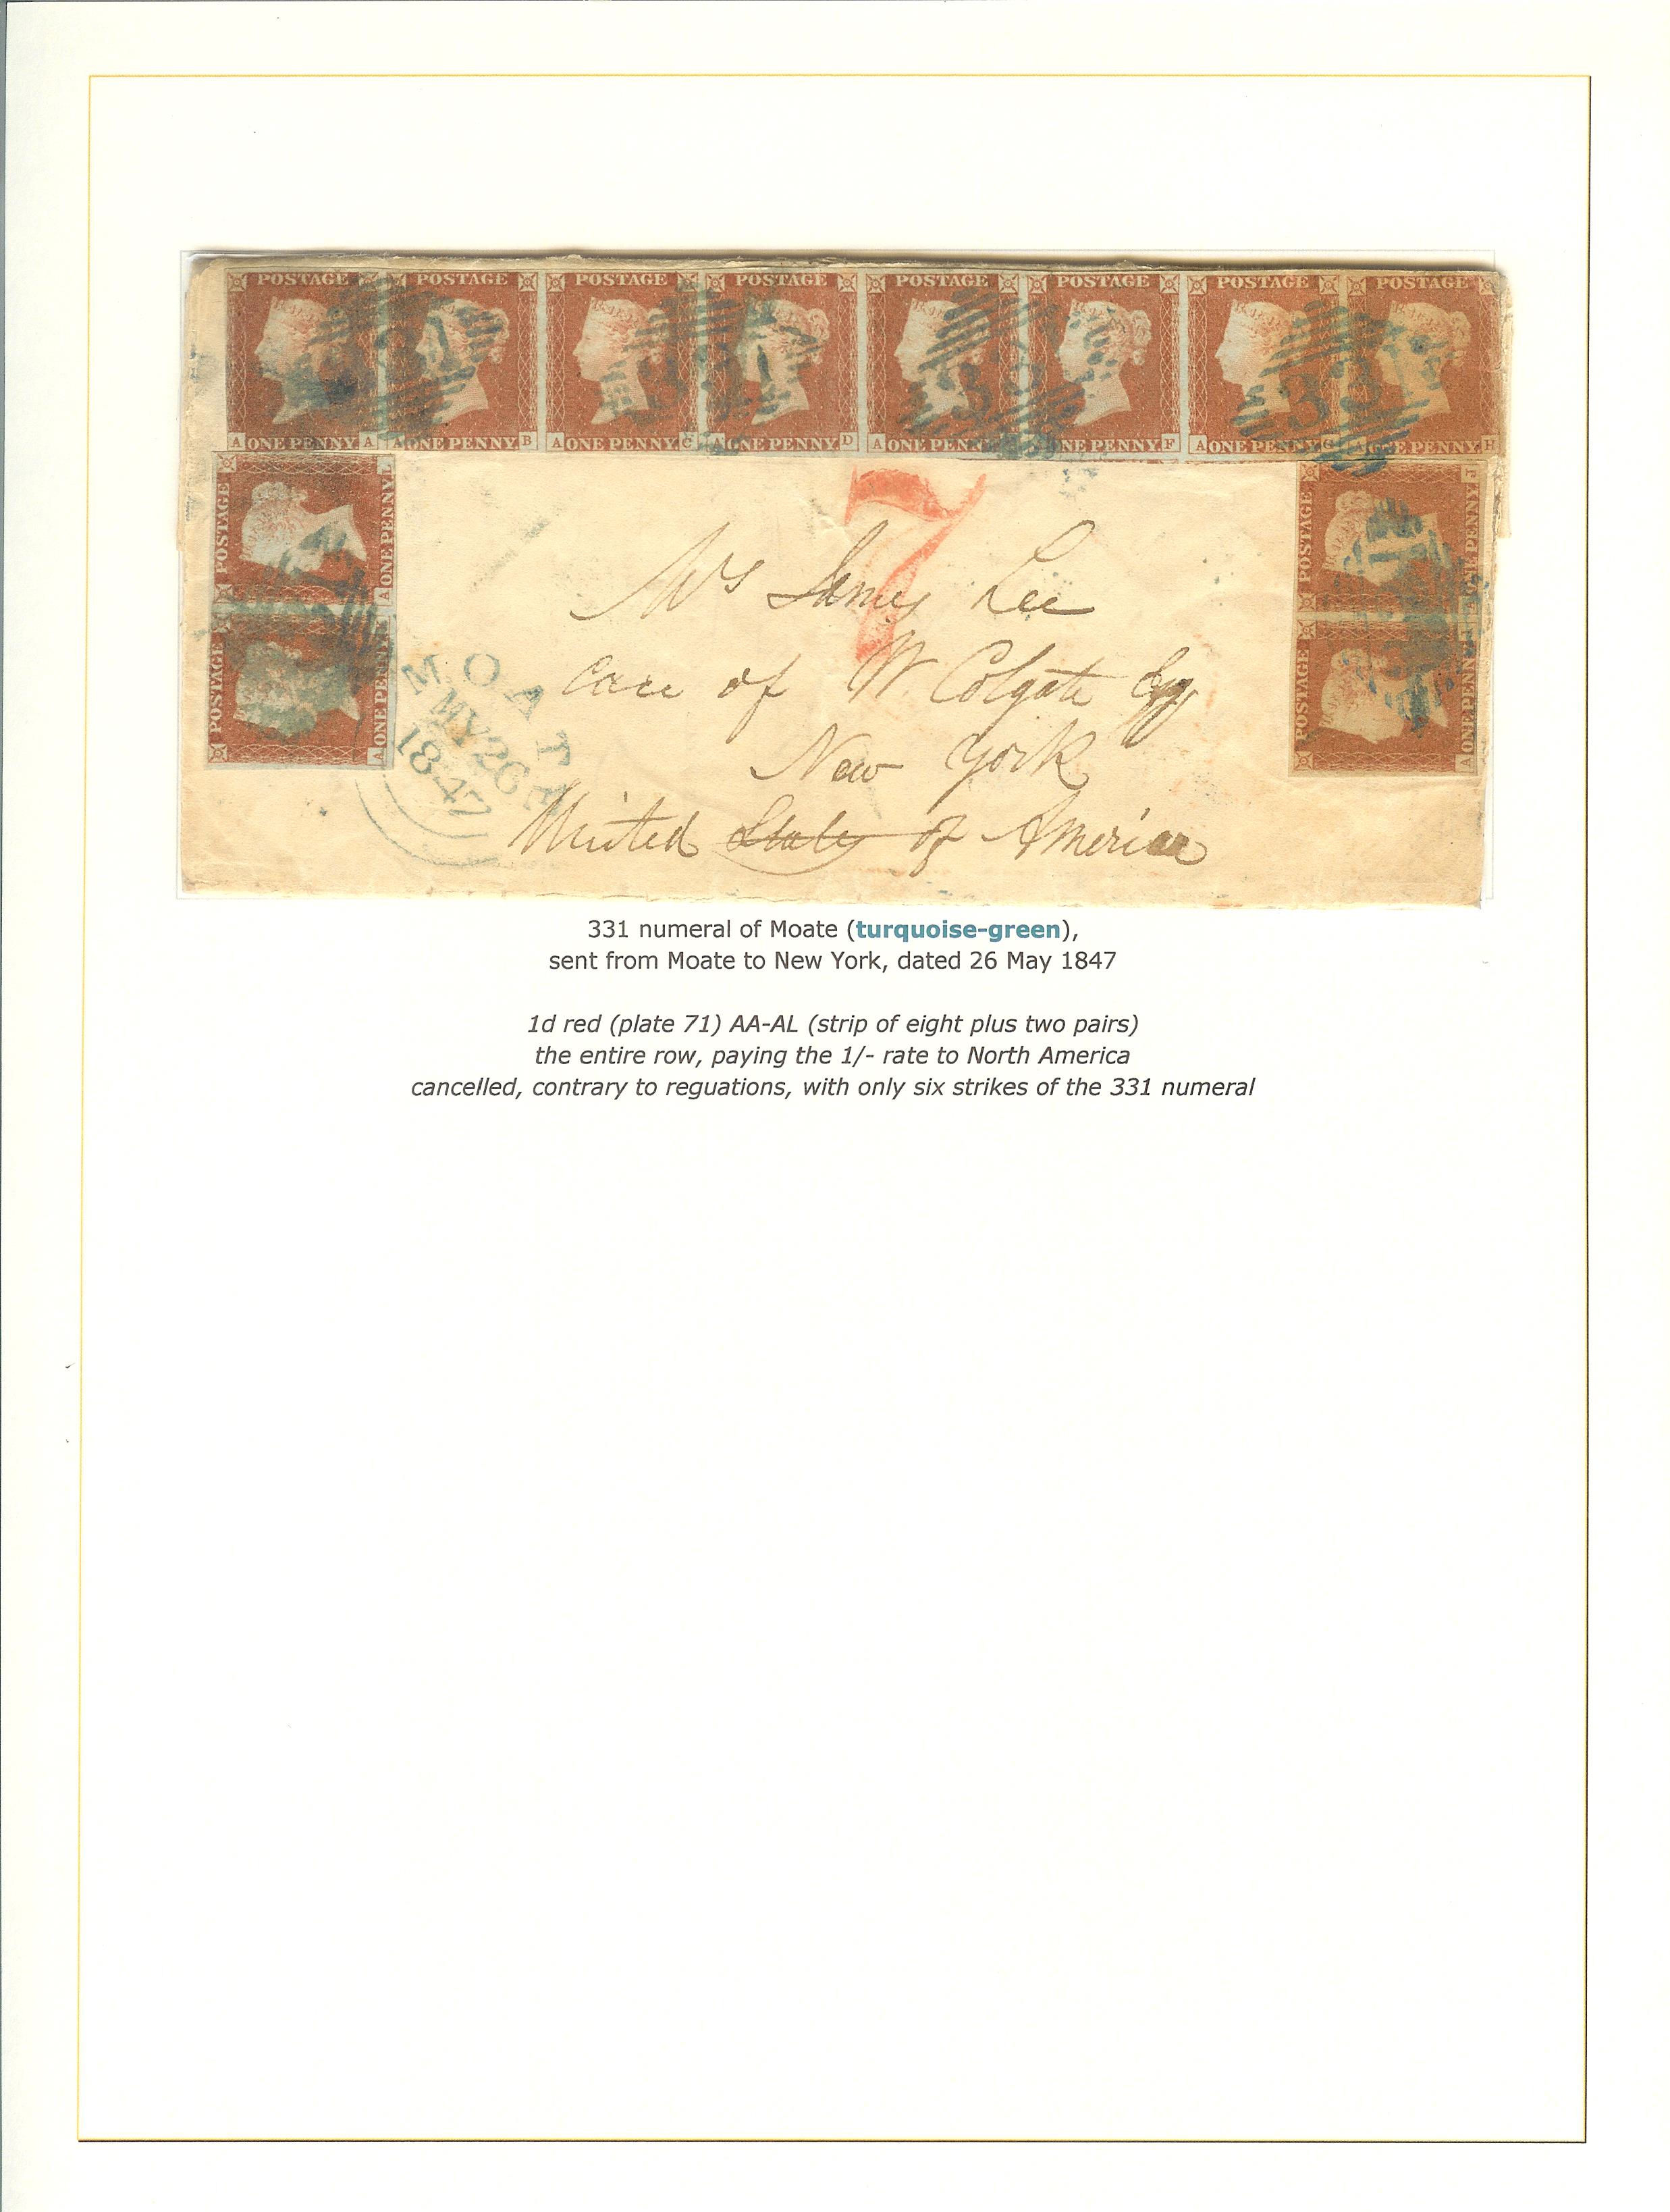 POSTAGE POSTAGE POSTAGE POSTAGE POSTAGE POSTAGE POSTAGE POSTAGE
A ONE PENNY A A ONE PENNY B A ONE PENNY C A ONE PENNY D A ONE PENNY ONE PENNY F A ONE PENNY G A ONE PENNY H
POSTAGE A ONE PENNY L
POSTAGE A ONE PENNY
POSTAGE ONE PENNY J
POSTAGE A ONE PENNY
7
Mrs James Lee
Care of W. Colgate Esq
New York
United States of America
MOATE
MY 26
1847
331 numeral of Moate (turquoise-green),
sent from Moate to New York, dated 26 May 1847
1d red (plate 71) AA-AL (strip of eight plus two pairs)
the entire row, paying the 1/- rate to North America
cancelled, contrary to reguations, with only six strikes of the 331 numeral